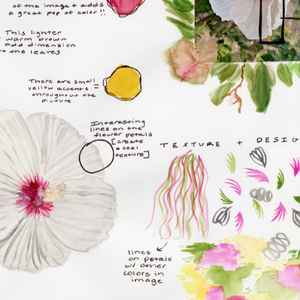 of the image + adds
a great pop of color!!
This lighter
+ warm brown
add dimension
to the leaves
There are small
yellow accents
throughout the
picture
Interesting
lines on the
flower petals
[create
a cool
texture]
TEXTURE + DESIG
lines
on petals
w/ other
colors in
image